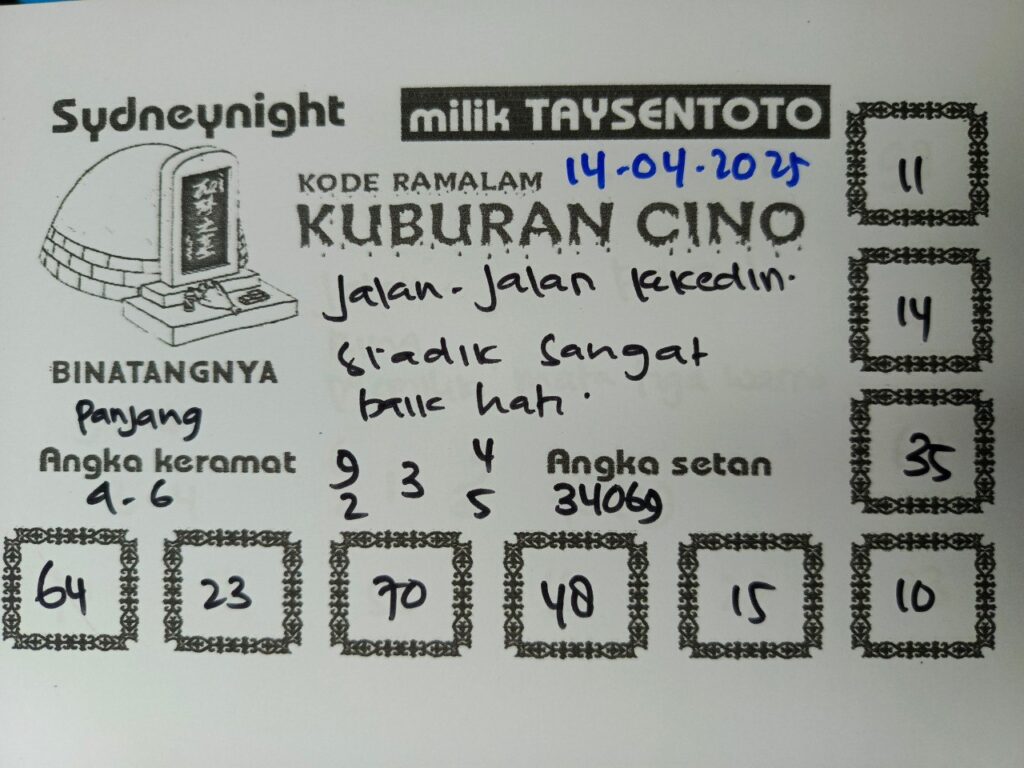 Sydneynight
milik TAYSENTOTO
KODE RAMALAM 14-04-2025
KUBURAN CINO
Jalan-Jalan kekedin.
siadik sangat
baik hati.
BINATANGNYA
Panjang
Angka keramat
9-6
9 4
3
2 5
Angka setan
34069
11
14
35
64 23 70 48 15 10